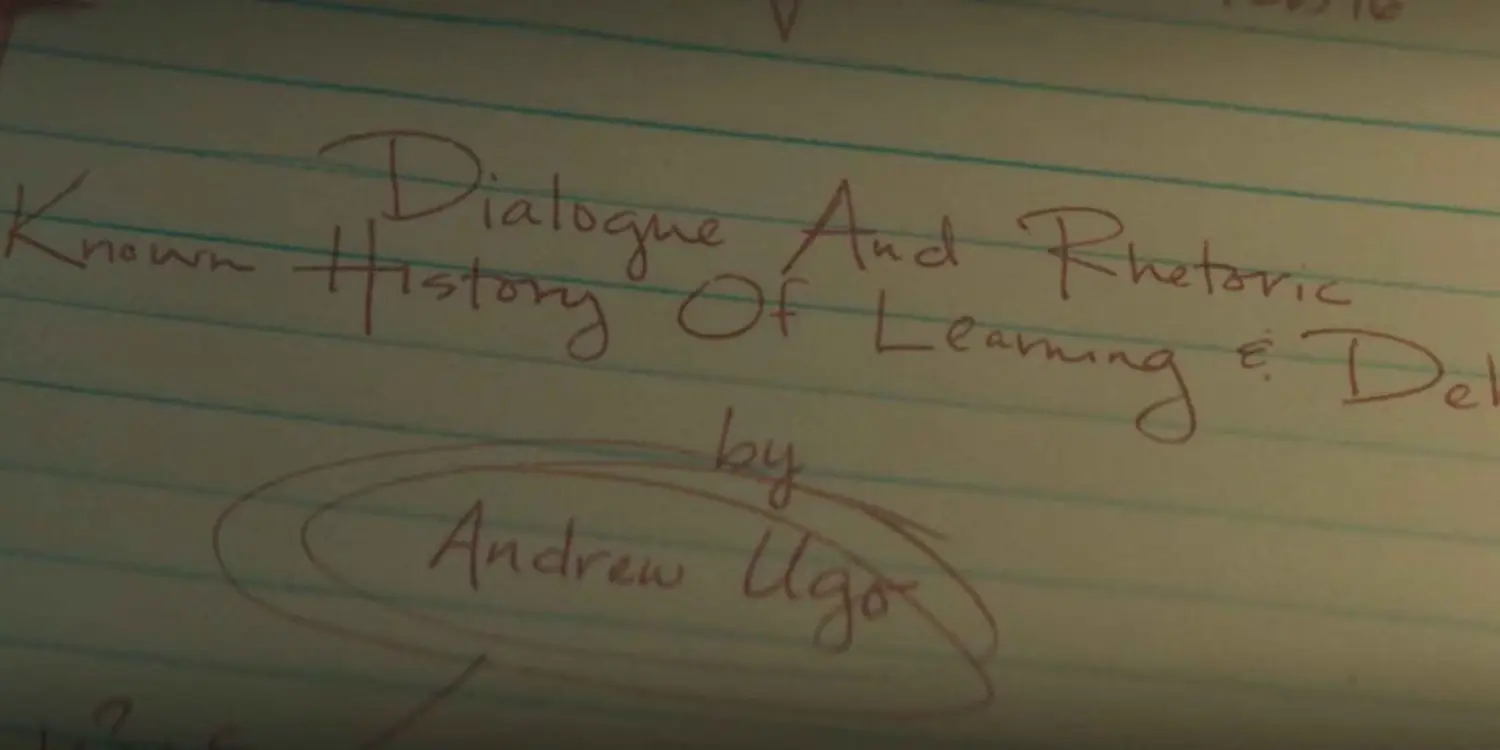 Dialogue And Rhetoric
Known History Of Learning &
by
Andrew Ugo